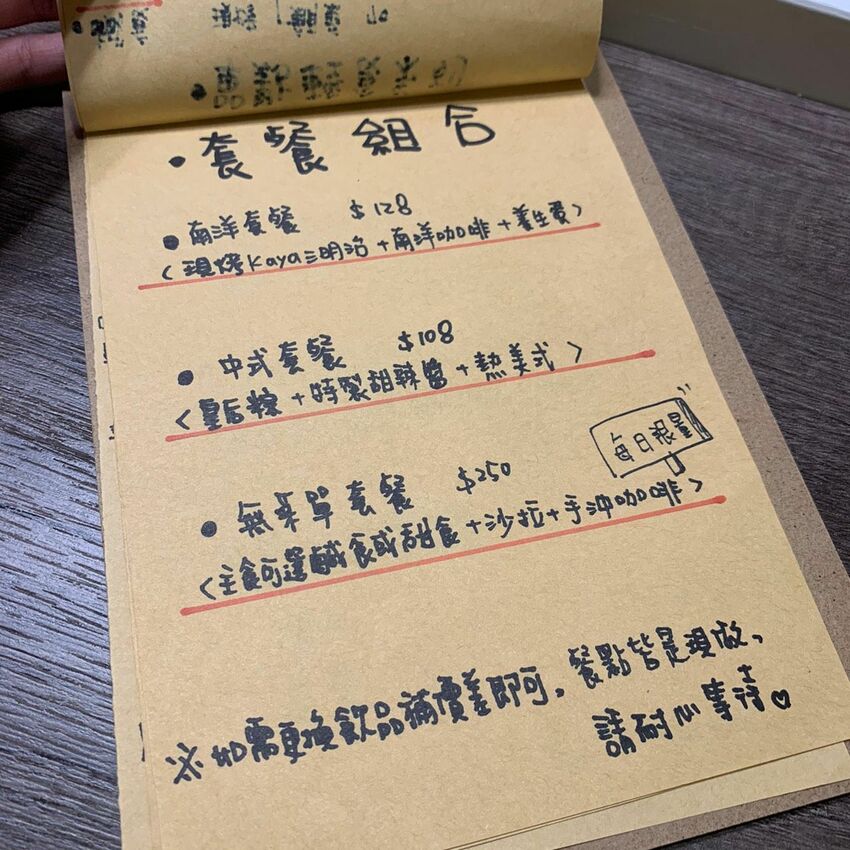 • 套餐組合
• 南洋套餐 $128
<現烤Kaya三明治+南洋咖啡+養生蛋>
• 中式套餐 $108
<皇后粽+特製甜辣醬+熱美式>
每日限量
• 無菜單套餐 $250
<主食可選鹹食或甜食+沙拉+手沖咖啡>
※如需更換飲品補價差即可。餐點皆是現做,
請耐心等待。♡